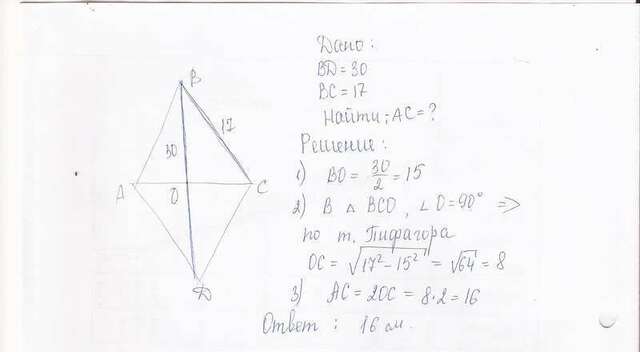 Дано:
BD = 30
BC = 17
Найти; AC = ?
Решение:
1) BO = 30/2 = 15
2) В △ BCO, ∠O = 90° =>
по т. Пифагора
OC = √17² - 15² = √64 = 8
3) AC = 2OC = 8·2 = 16
Ответ: 16 см.
B
17
30
A
O
C
D